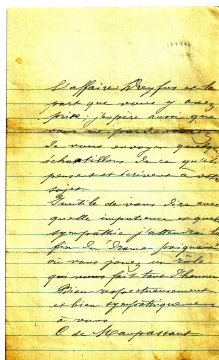 L'affaire Dreyfus et la
part que vous y avez
prise. J'espère aussi que
vous me
de vous envoyer quelques
échantillons de ce qu'ils
pensent et écrivent à votre
sujet.
Inutile de vous dire avec
quelle impatience et quelle
sympathie j'attends la
fin du "Drame poignant"
où vous jouez un rôle
qui vous fait tant d'honneur
Bien respectueusement
et bien sympathiquement
à vous
C de Maupassant